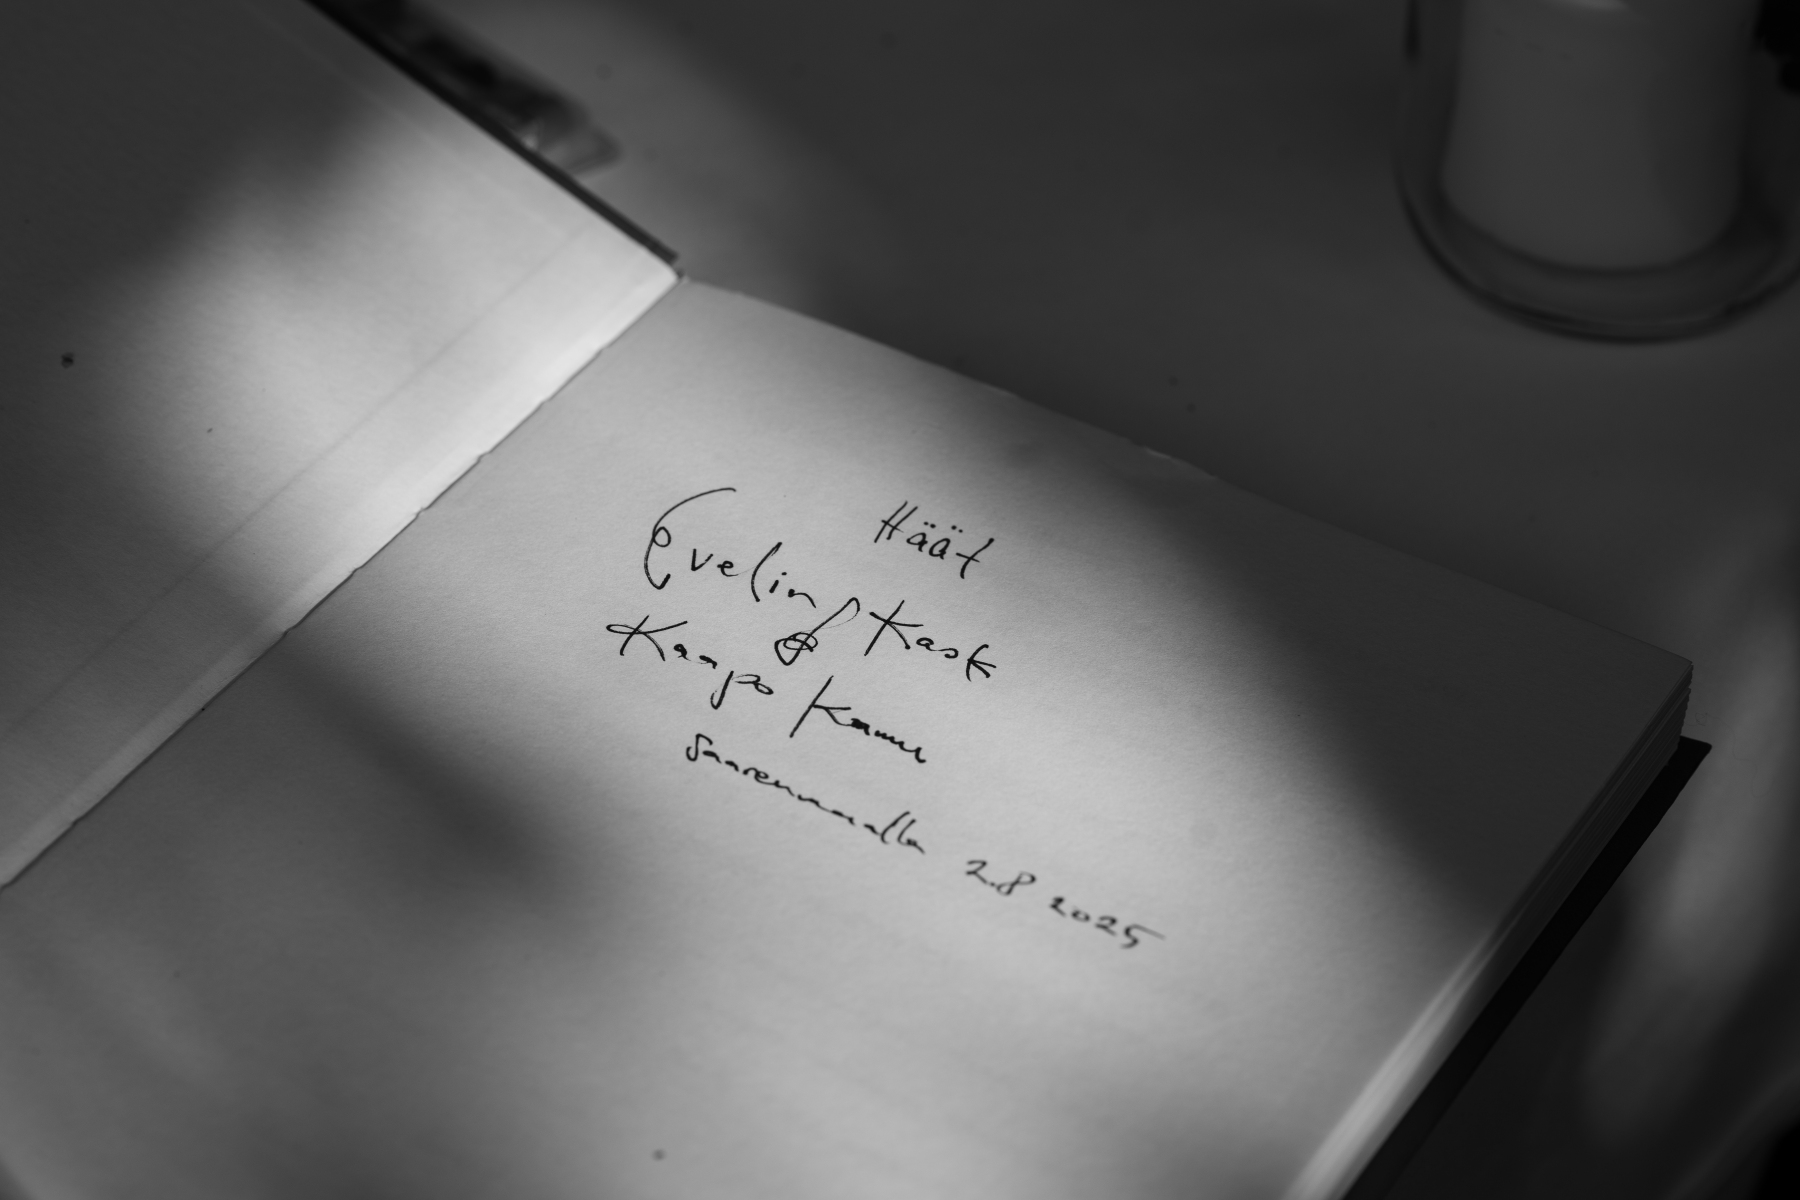 Häät
Evelin Kask
&
Kaapo Kamu
Saarenmaalla 2.8 2025